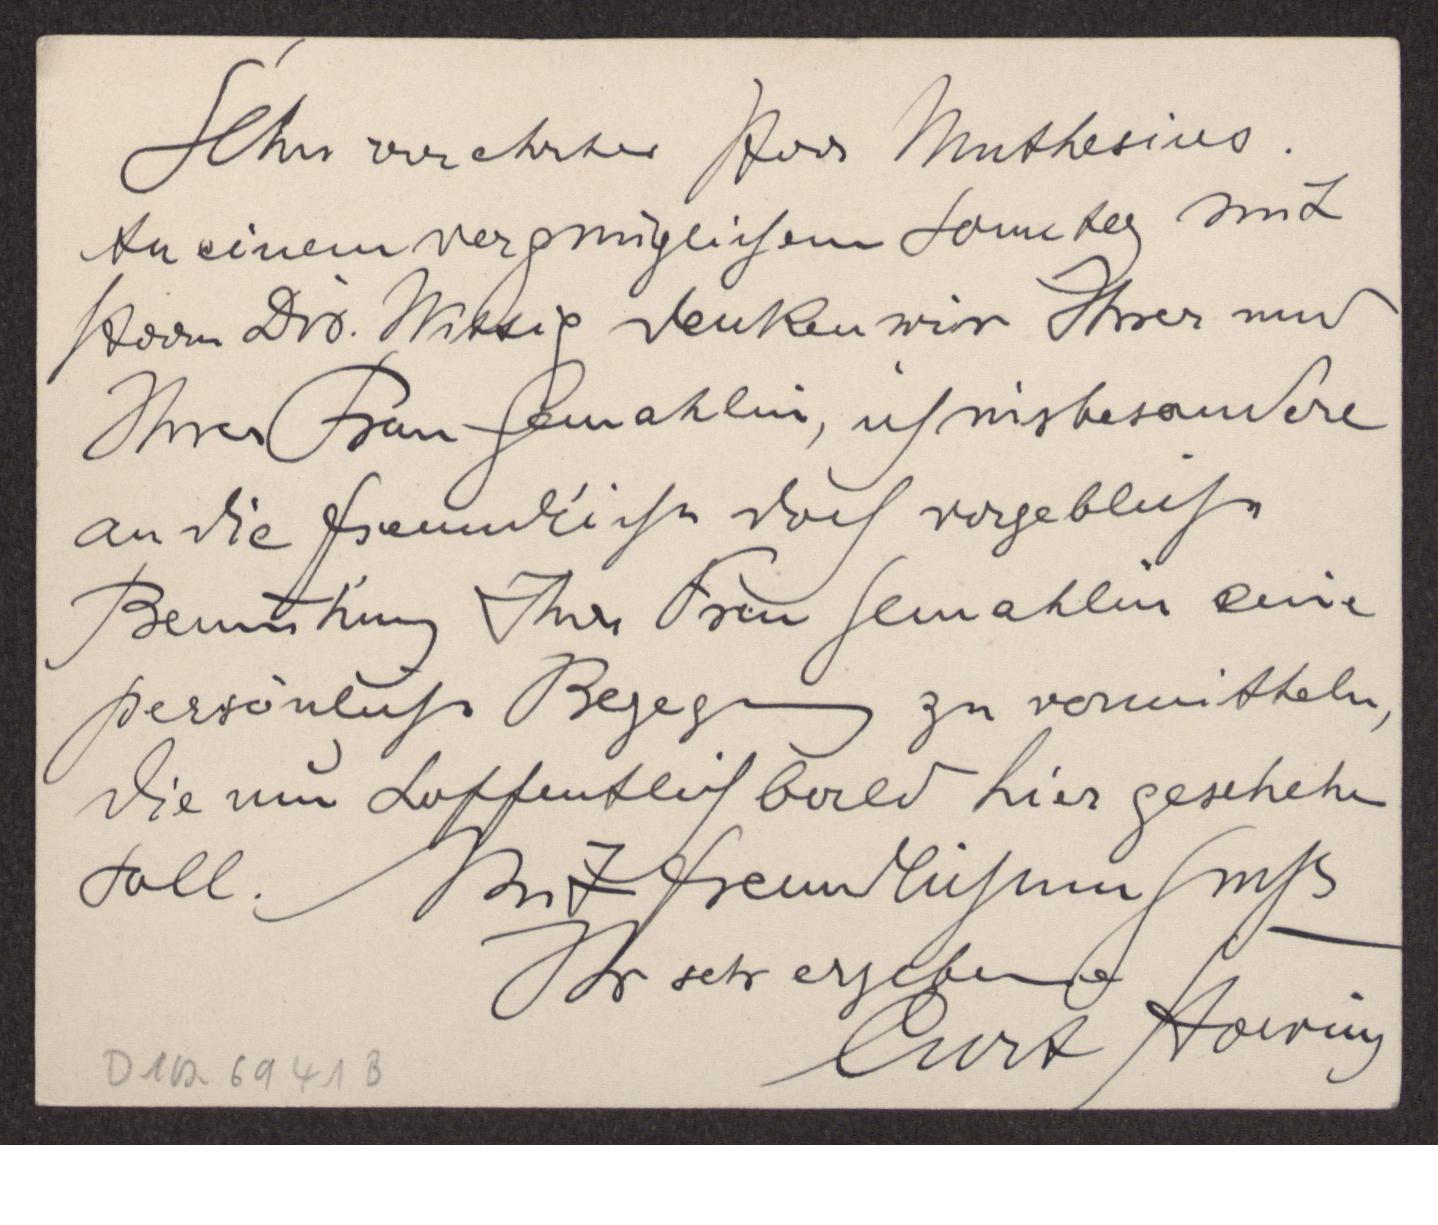 Sehr verehrter Herr Muthesius.
An einem vergnüglichem Sonntag mit
Herrn Dir. Wittig denken wir Ihrer und
Ihrer Frau Gemahlin, ich insbesondere
an die freundliche doch vergebliche
Bemühung Ihrer Frau Gemahlin eine
persönliche Begegnung zu vermitteln,
die nun hoffentlich bald hier geschehen
soll. Mit freundlichem Gruß
Ihr sehr ergebener
Curt Hoering
D 102 6941 B